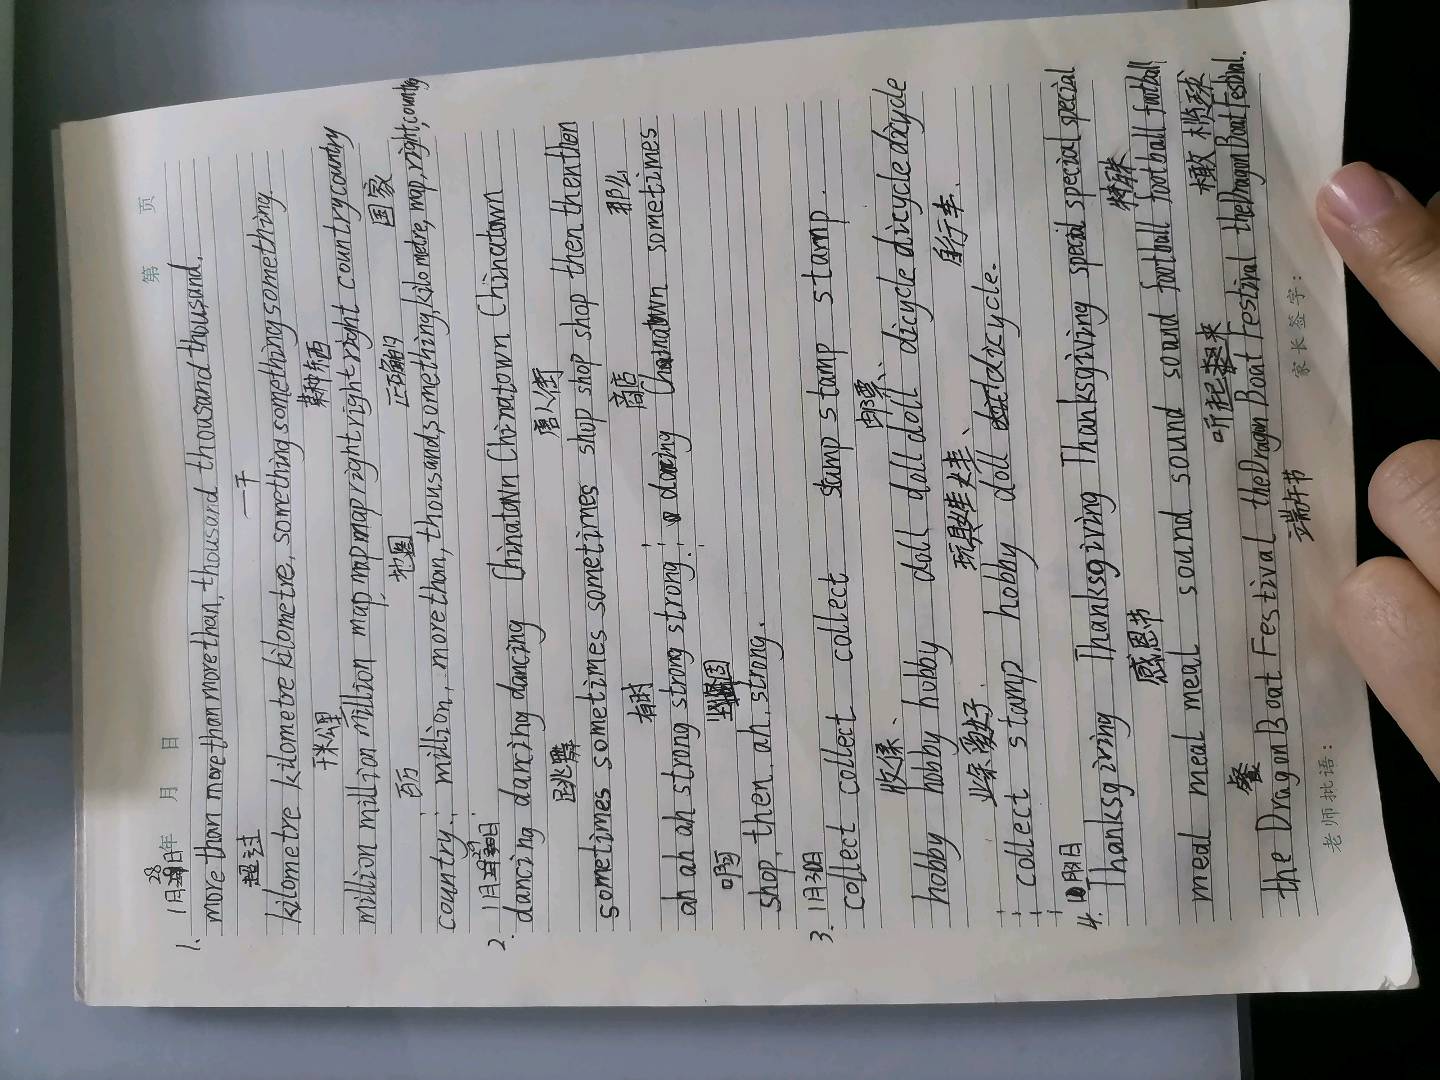 第 页
1月28日年 月 日
1. more than more than more than, thousand thousand thousand.
超过 一千
kilometre kilometre kilometre, something something something.
千米公里 某种东西
million million million map map map right right right country country
百万 地图 正确的 国家
country. million, more than, thousand, something, kilometre, map, right, country
2. 1月29日
dancing dancing dancing Chinatown Chinatown Chinatown Chinatown
跳舞 唐人街
sometimes sometimes sometimes sometimes shop shop shop then then then
有时 商店 那么
ah ah ah strong strong strong. dancing Chainatown sometimes
啊 坚固
shop, then, ah, strong.
3. 1月30日
collect collect collect collect stamp stamp stamp stamp.
收集、 邮票、
hobby hobby hobby hobby doll doll doll doll dicycle dicycle dicycle
业余爱好. 玩具娃娃、 自行车、
collect stamp hobby doll dicycle.
4. 1月31日
Thanksgiving Thanksgiving Thanksgiving Thanksgiving special special special
感恩节 特殊
meal meal meal meal sound sound sound sound football football football
餐 听起来 橄榄球
the Dragon Boat Festival the Dragon Boat Festival the Dragon Boat Festival.
端午节
老师批语： 家长签字：